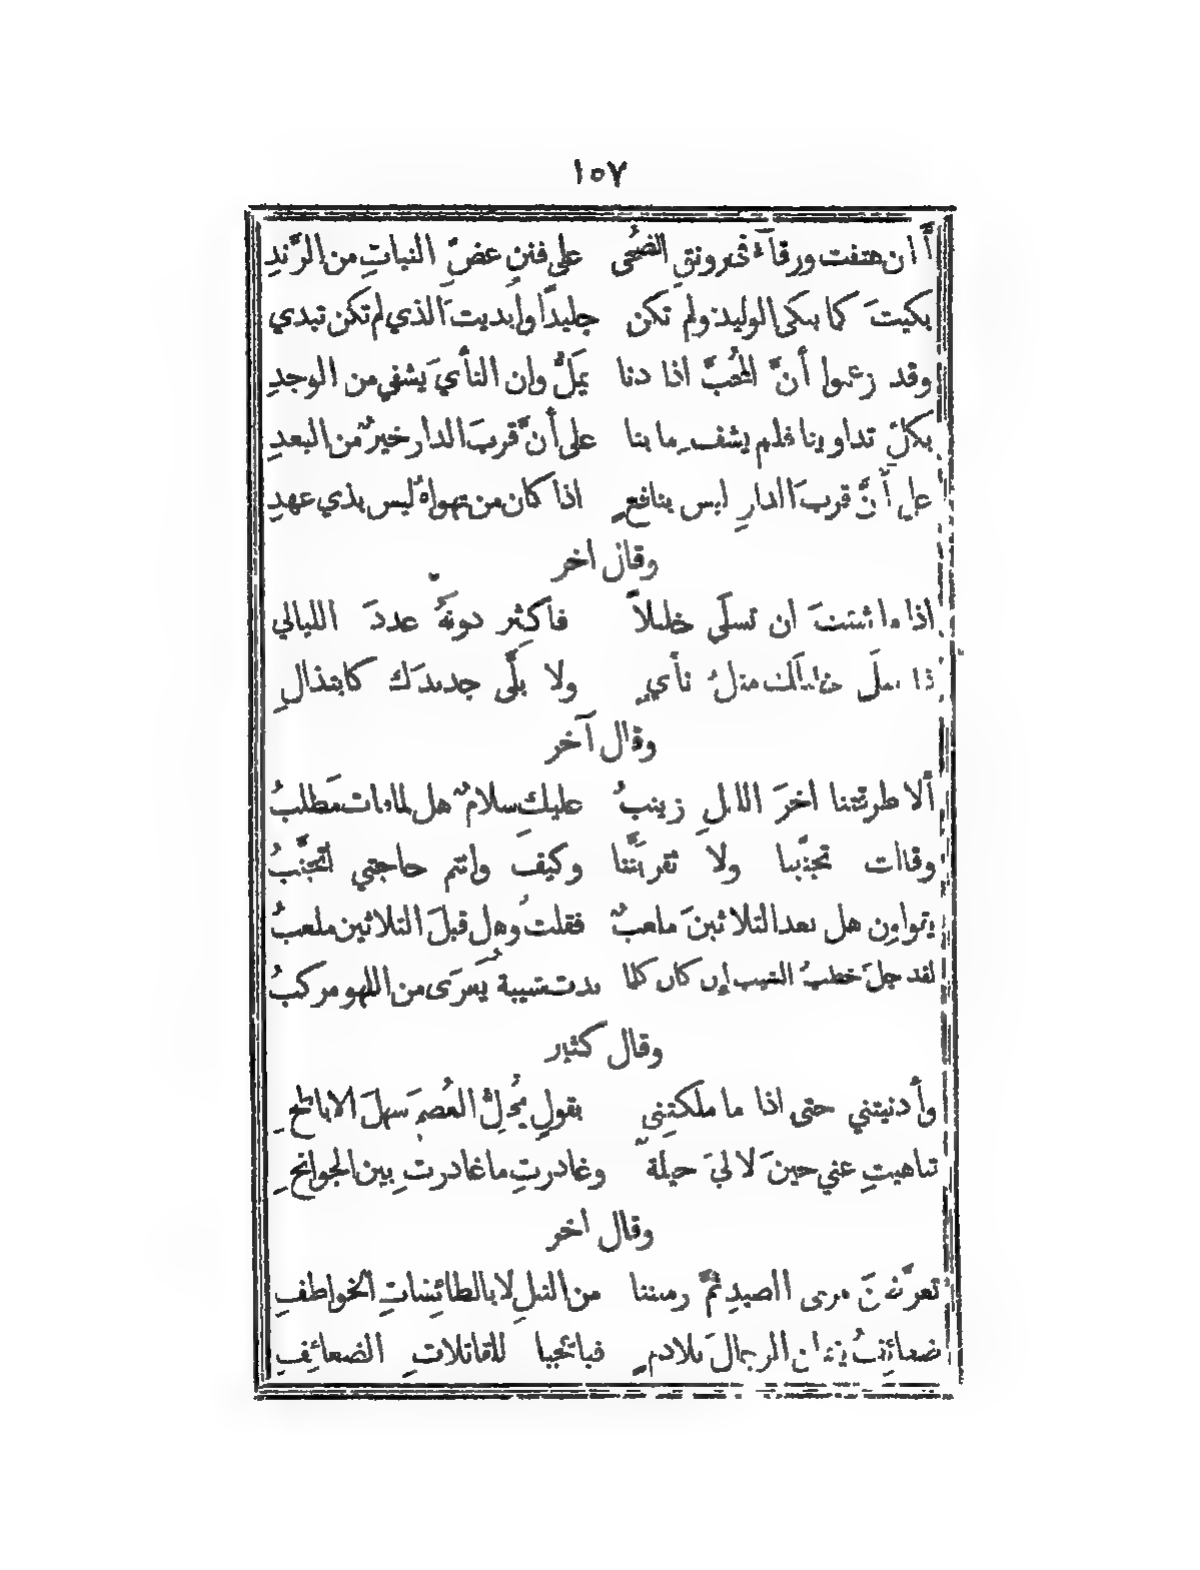 ١٥٧
أَ ان هتفت ورقاء في رونق الضُّحى على فننٍ غضِّ النباتِ من الرَّندِ
بكيتَ كما يبكي الوليد ولم تكن جليدًا وأبديتَ الذي لم تكن تبدي
وقد زعموا أنَّ المُحبَّ اذا دنا يَمَلُّ وان النأيَ يشفي من الوجدِ
بكلّ تداوينا فلم يشفِ ما بنا على أنَّ قربَ الدار خيرٌ من البعدِ
على أنَّ قربَ الدارِ ليس بنافعٍ اذا كان من تهواهُ ليس بذي عهدِ
وقال اخر
اذا ما شئتَ ان تسلَى خليلاً فاكثِر دونهُ عددَ الليالي
سلَّى خليلَك مثلُ نأيٍ ولا بلَّى جديدَك كابتذالِ
وقال آخر
ألا طرقتنا اخرَ الليلِ زينبُ عليكِ سلامٌ هل لما فات مَطلبُ
وقالت تجنّبنا ولا تقربَنَّنا وكيف وانتم حاجتي اتجنَّبُ
يقولون هل بعد الثلاثينَ ملعبٌ فقلتُ وهل قبلَ الثلاثين ملعبُ
لقد جلَّ خطبُ الشيب إن كان كلما بدت شيبةٌ يَعرَى من اللهو مركبُ
وقال كثير
وأدنيتني حتى اذا ما ملكتِني بقولٍ يُحلُّ العُصمَ سهلَ الاباطحِ
تناهيتِ عني حينَ لا ليَ حيلةٌ وغادرتِ ما غادرتِ بين الجوانحِ
وقال اخر
تعرَّضنَ مرمى الصيدِ ثمَّ رميننا من النبلِ لا بالطائِشاتِ الخواطفِ
ضعائِفُ يقتلن الرجالَ بلا دمٍ فيا عجبا للقاتلاتِ الضعائِفِ